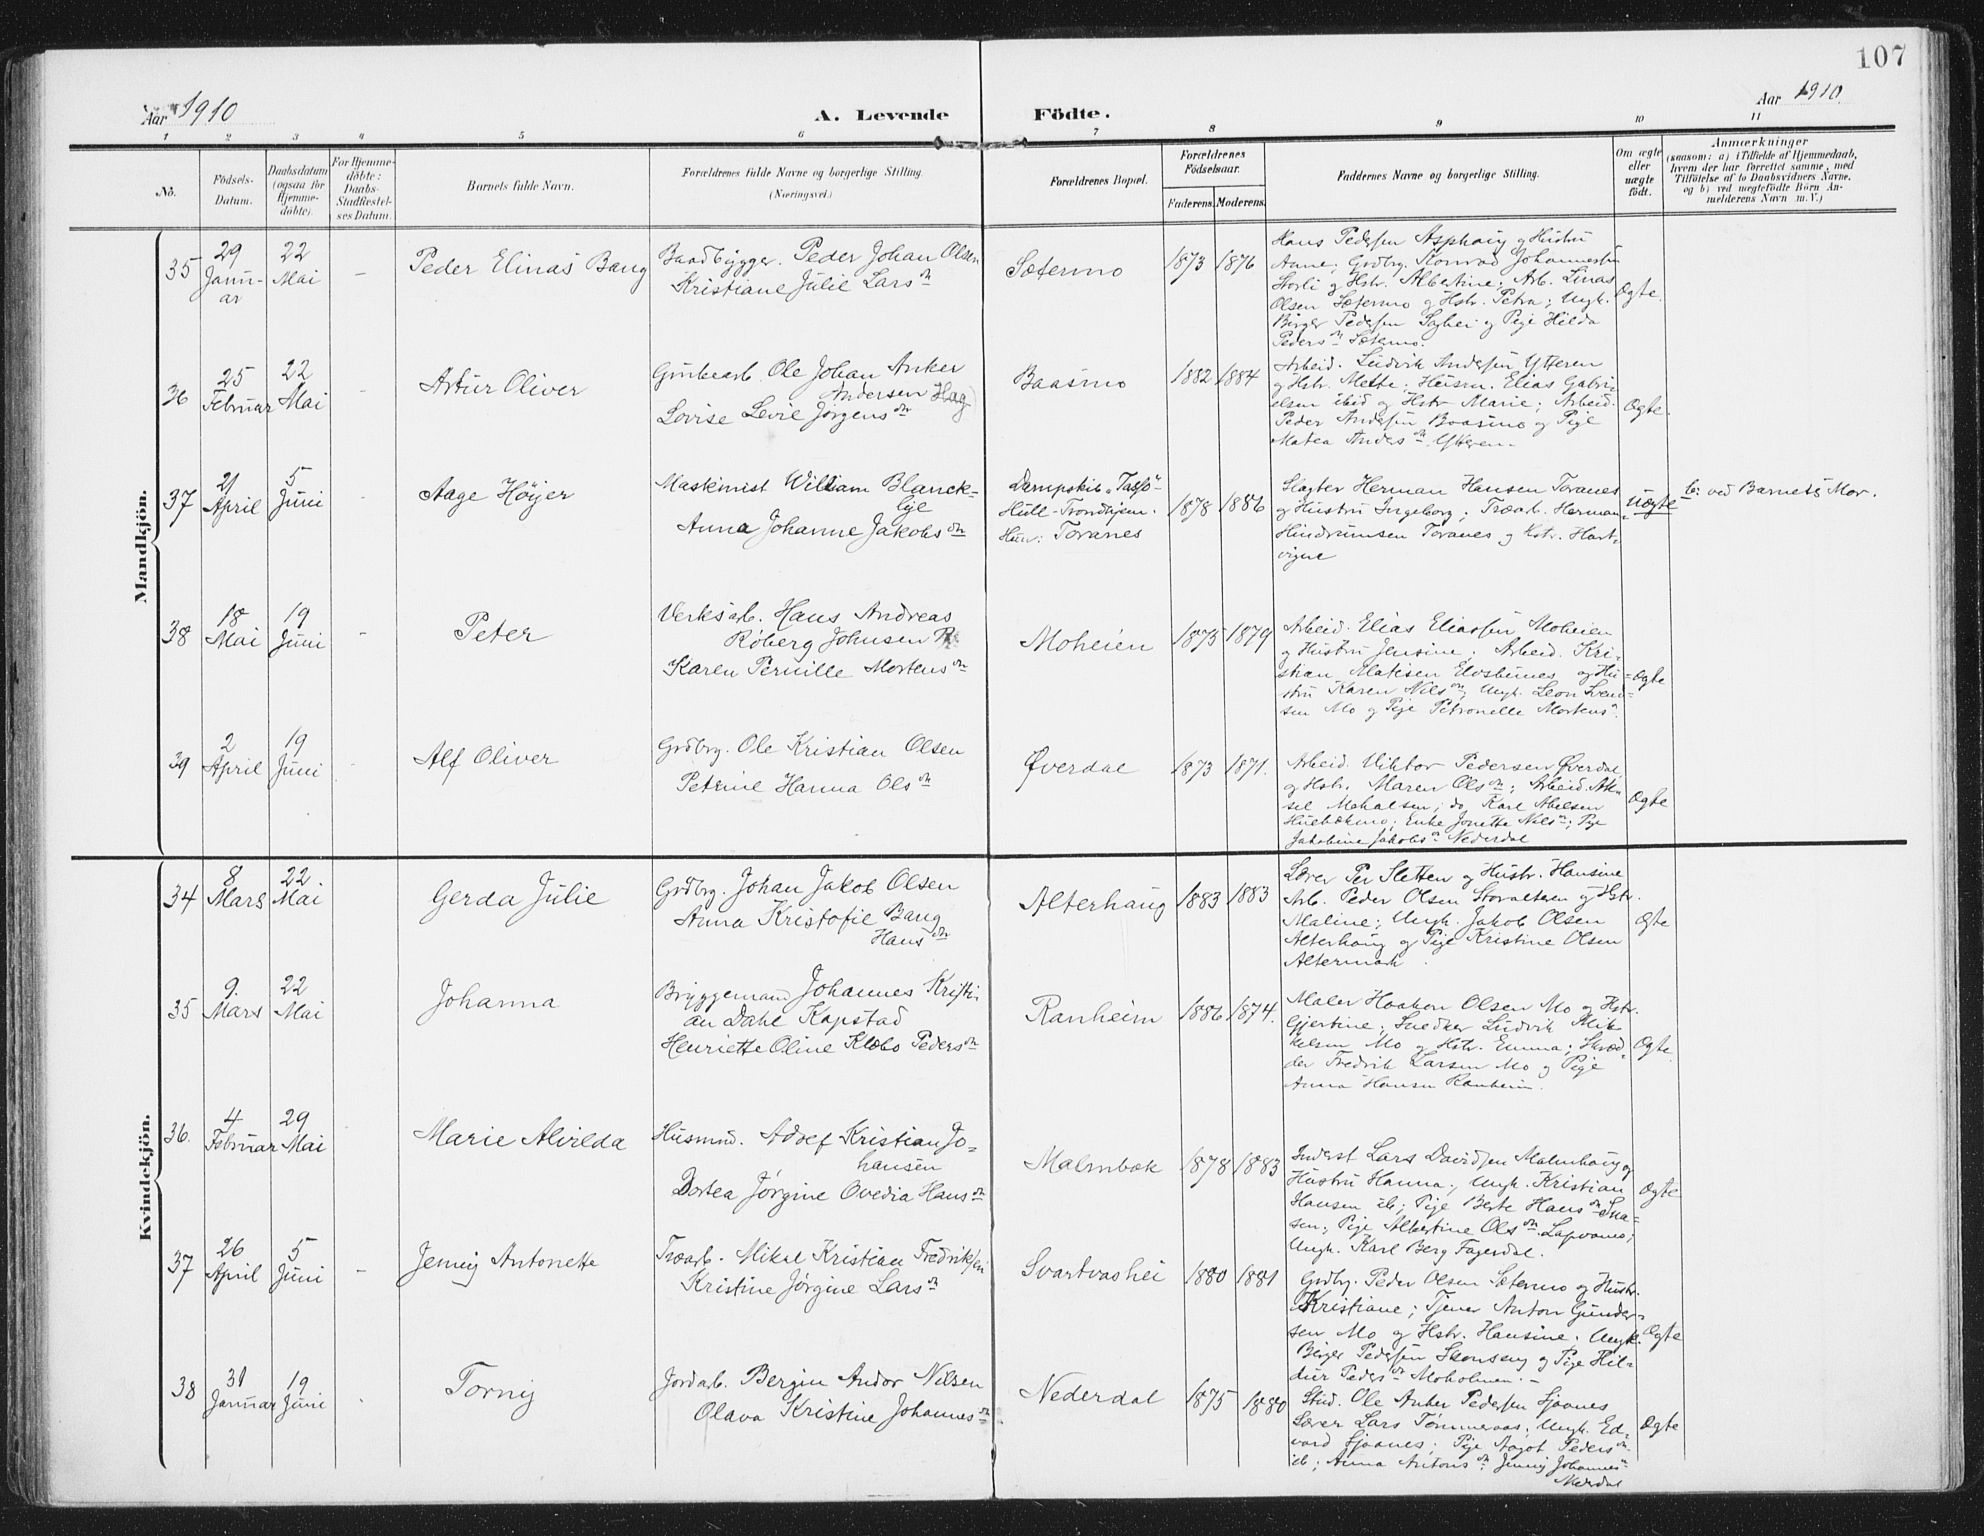 107
Aar 1910
A. Levende
Födte.
Aar 1910.
1 2 3 4 5 6 7 8 9 10 11
No.
Födsels-
Datum.
Daabsdatum
(ogsaa for
Hjemme-
döbte).
For Hjemme-
döbte:
Daabs-
Stadfæstel-
ses Datum.
Barnets fulde Navn.
Forældrenes fulde Navne og borgerlige Stilling.
(Næringsvei.)
Forældrenes Bopæl.
Forældrenes
Födselsaar.
Faderens. Moderens.
Faddernes Navne og borgerlige Stilling.
Om ægte
eller
uægte
födt.
Anmærkninger
(saasom: a) i Tilfælde af Hjemmedaab,
hvem der har forrettet samme, med
Tilföielse af to Daabsvidners Navne,
og b) ved uægtefödte Börn An-
melderens Navn m. V.)
Mandkjön.
35
29
Janu-
ar
22
Mai
-
Peder Elinas Bang
Baadbygger. Peder Johan Olsen
Kristiane Julie Larsdn
Sætermo
1873 1876
Hans Pedersen Asphaug og Hustru
Anne; Grdbrg. Konrad Johannessen
Storli og Hstr. Albertine; Arb. Linas
Olsen Sætermo og Hstr. Petra; Ungk.
Birger Pedersen og Pige Hilda
Pedersdn Sætermo.
Ægte.
36
25
Februar
22
Mai
Artur Oliver
Grubearb. Ole Johan Anker
Andersen Hag
Lovise Levie Jørgensdn
Baasmo
1882 1884
Arbeid. Ludvik Andersen Ytteren
og Hstr. Mette; Husm. Elias Gabri-
elsen ibid og Hstr Marie; Arbeid.
Peder Andersen Baasmo og Pige
Matea Andersdn Ytteren.
Ægte.
37
21
April
5
Juni
-
Aage Höyer
Maskinist William Blanck-
lye
Anna Johanne Jakobsdn
Dampskib "Tasso"
Hull-Trondhjem.
Hun: Toranes
1878 1886
Slagter Herman Hansen Toranes
og Hustru Ingeborg; Træarb. Herman
Hindrumsen Toranes og Hstr. Hart-
vigne
Uægte
b: ved Barnets Mor.
38
18
Mai
19
Juni
-
Peter
Verksarb. Hans Andreas
Røberg Johnsen
Karen Pernille Mortensdn
Moheien
1875 1879
Arbeid. Elias Eliassen Moheien
og Hustru Jensine; Arbeid. Kri-
stian Matisen og Hu-
stru Karen Nilsdn; Ungk. Leon Svend-
sen Mo og Pige Petronelle Mortensdn.
Ægte
39
2
April
19
Juni
-
Alf Oliver
Grdbrg. Ole Kristian Olsen
Petrine Hanna Olsdn
Øverdal
1873 1871.
Arbeid. Viktor Pedersen Øverdal
og Hstr. Maren Olsdn; Arbeid. Ak-
sel Mehalsen; do Karl Abelsen
Enke Jonette Nilsdn; Pige
Jakobine Jakobsdn Nederdal
Ægte
Kvindekjön.
34
8
Mars
22
Mai
Gerda Julie
Grdbrg. Johan Jakob Olsen
Anna Kristofie Bang
Hansdn
Alterhaug
1883 1883
Lærer Per Sletten og Hustr. Hansine
Arb. Peder Olsen Storalteren og Hstr.
Maline; Ungk. Jakob Olsen
Alterhaug og Pige Kristine Olsen
Altermark.
Ægte
35
9.
Mars
22
Mai
Johanna
Bryggemand Johannes Kristi-
an Dahl Kapstad
Henriette Oline Klæbo Pedersdn
Ranheim
1886 1874.
Maler Haakon Olsen Mo og Hstr.
Gjertine; Snedker Ludvik Mik-
kelsen Mo og Hstr. Emma; Skræd-
der Fredrik Larsen Mo og Pige
Anna Hansen Ranheim.
Ægte
36.
4
Februar
29
Mai
Marie Alvilda
Husmnd. Adolf Kristian Jo-
hansen
Dortea Jørgine Ovedia Hansdn
Malmbæk
1878 1883
Inderst Lars Davidsen Malmhaug og
Hustru Hanna; Ungk. Kristian
Hansen ib; Pige Berte Hansdn
Pige Albertine Olsdn
Ungk. Karl Berg Fagerdal.
Ægte
37
26
April
5
Juni
-
Jenny Antonette
Træarb. Mikal Kristian Fredriksen
Kristine Jørgine Larsdn
Svartvashei
1880 1881
Grdbrg. Peder Olsen Sætermo og Hustr.
Kristiane; Tjener Anton Gunder-
sen Mo og Hstr. Hansine. Ungk.
Birger Pedersen Skonseng og Pige Hil-
dur Pedersdn Moholmen.-
Ægte
38
31
Januar
19
Juni
-
Torny
Jordarb. Bergin Andor Nilsen
Olava Kristine Johannesdn
Nederdal
1875 1880
Stud. Ole Anker Pedersen Sjoanes
Lærer Lars Tømmeraas; Ungk. Ed-
vard Sjoanes; Pige Aagot Pedersdn
ib; Anna Antonsdn; Jenny Johannesdn
Nederdal
Ægte